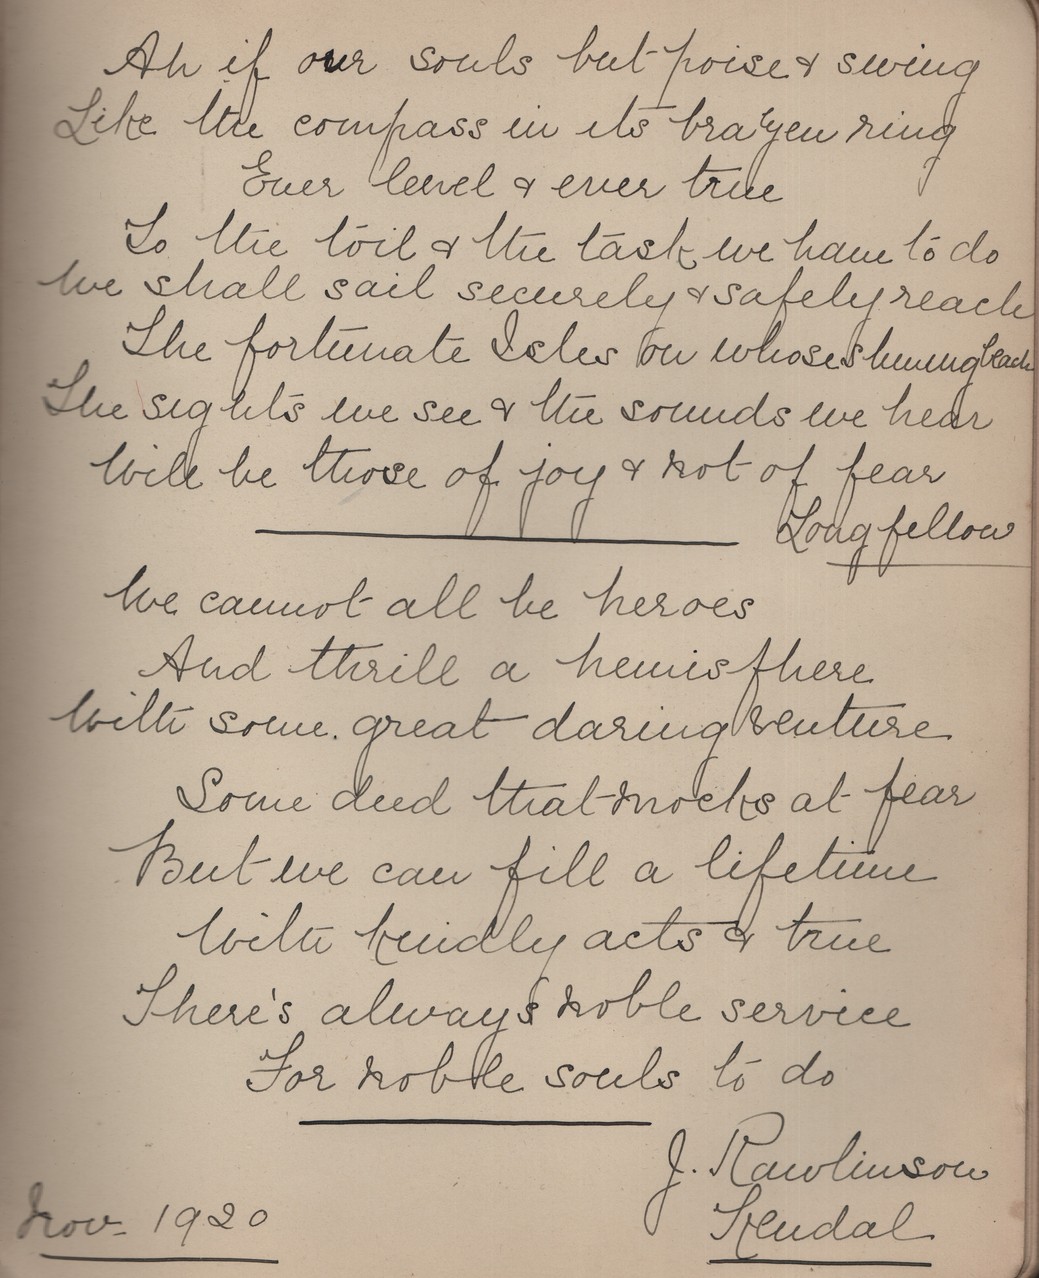 Ah if our souls but poise & swing
Like the compass in its brazen ring
Ever level & ever true
To the toil & the task we have to do
We shall sail securely & safely reach
The fortunate Isles on whose shining beach
The sights we see & the sounds we hear
Will be those of joy & not of fear
Longfellow
We cannot all be heroes
And thrill a hemisphere
With some great daring venture
Some deed that mocks at fear
But we can fill a lifetime
With kindly acts & true
There's always noble service
For noble souls to do
J. Rawlinson
Kendal
Nov. 1920